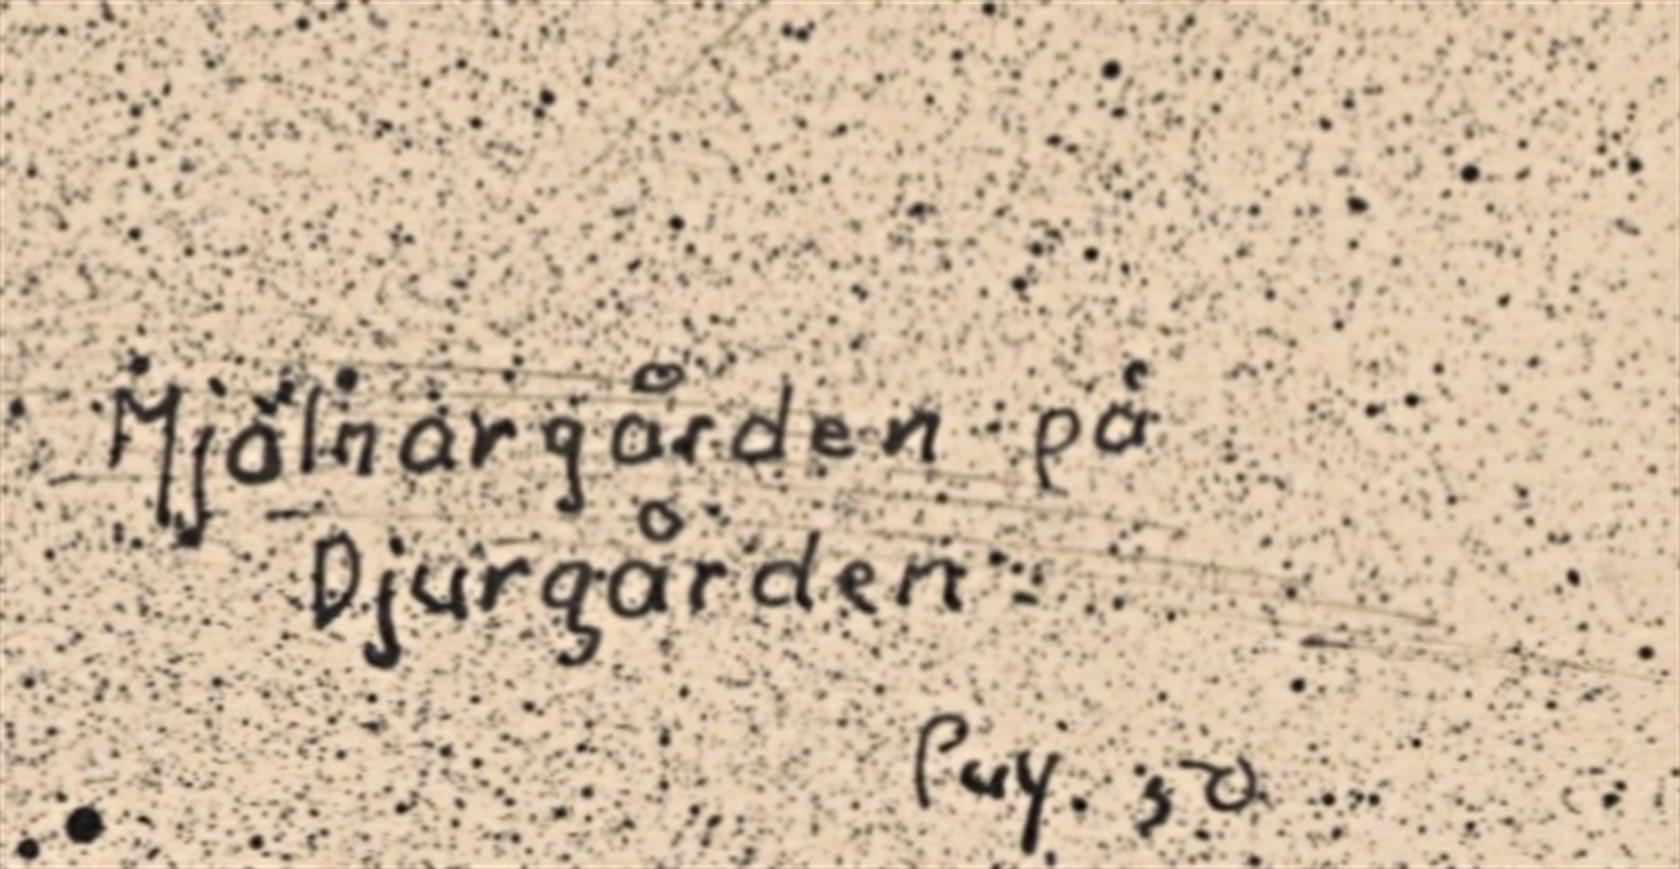 Mjölnargården på
Djurgården